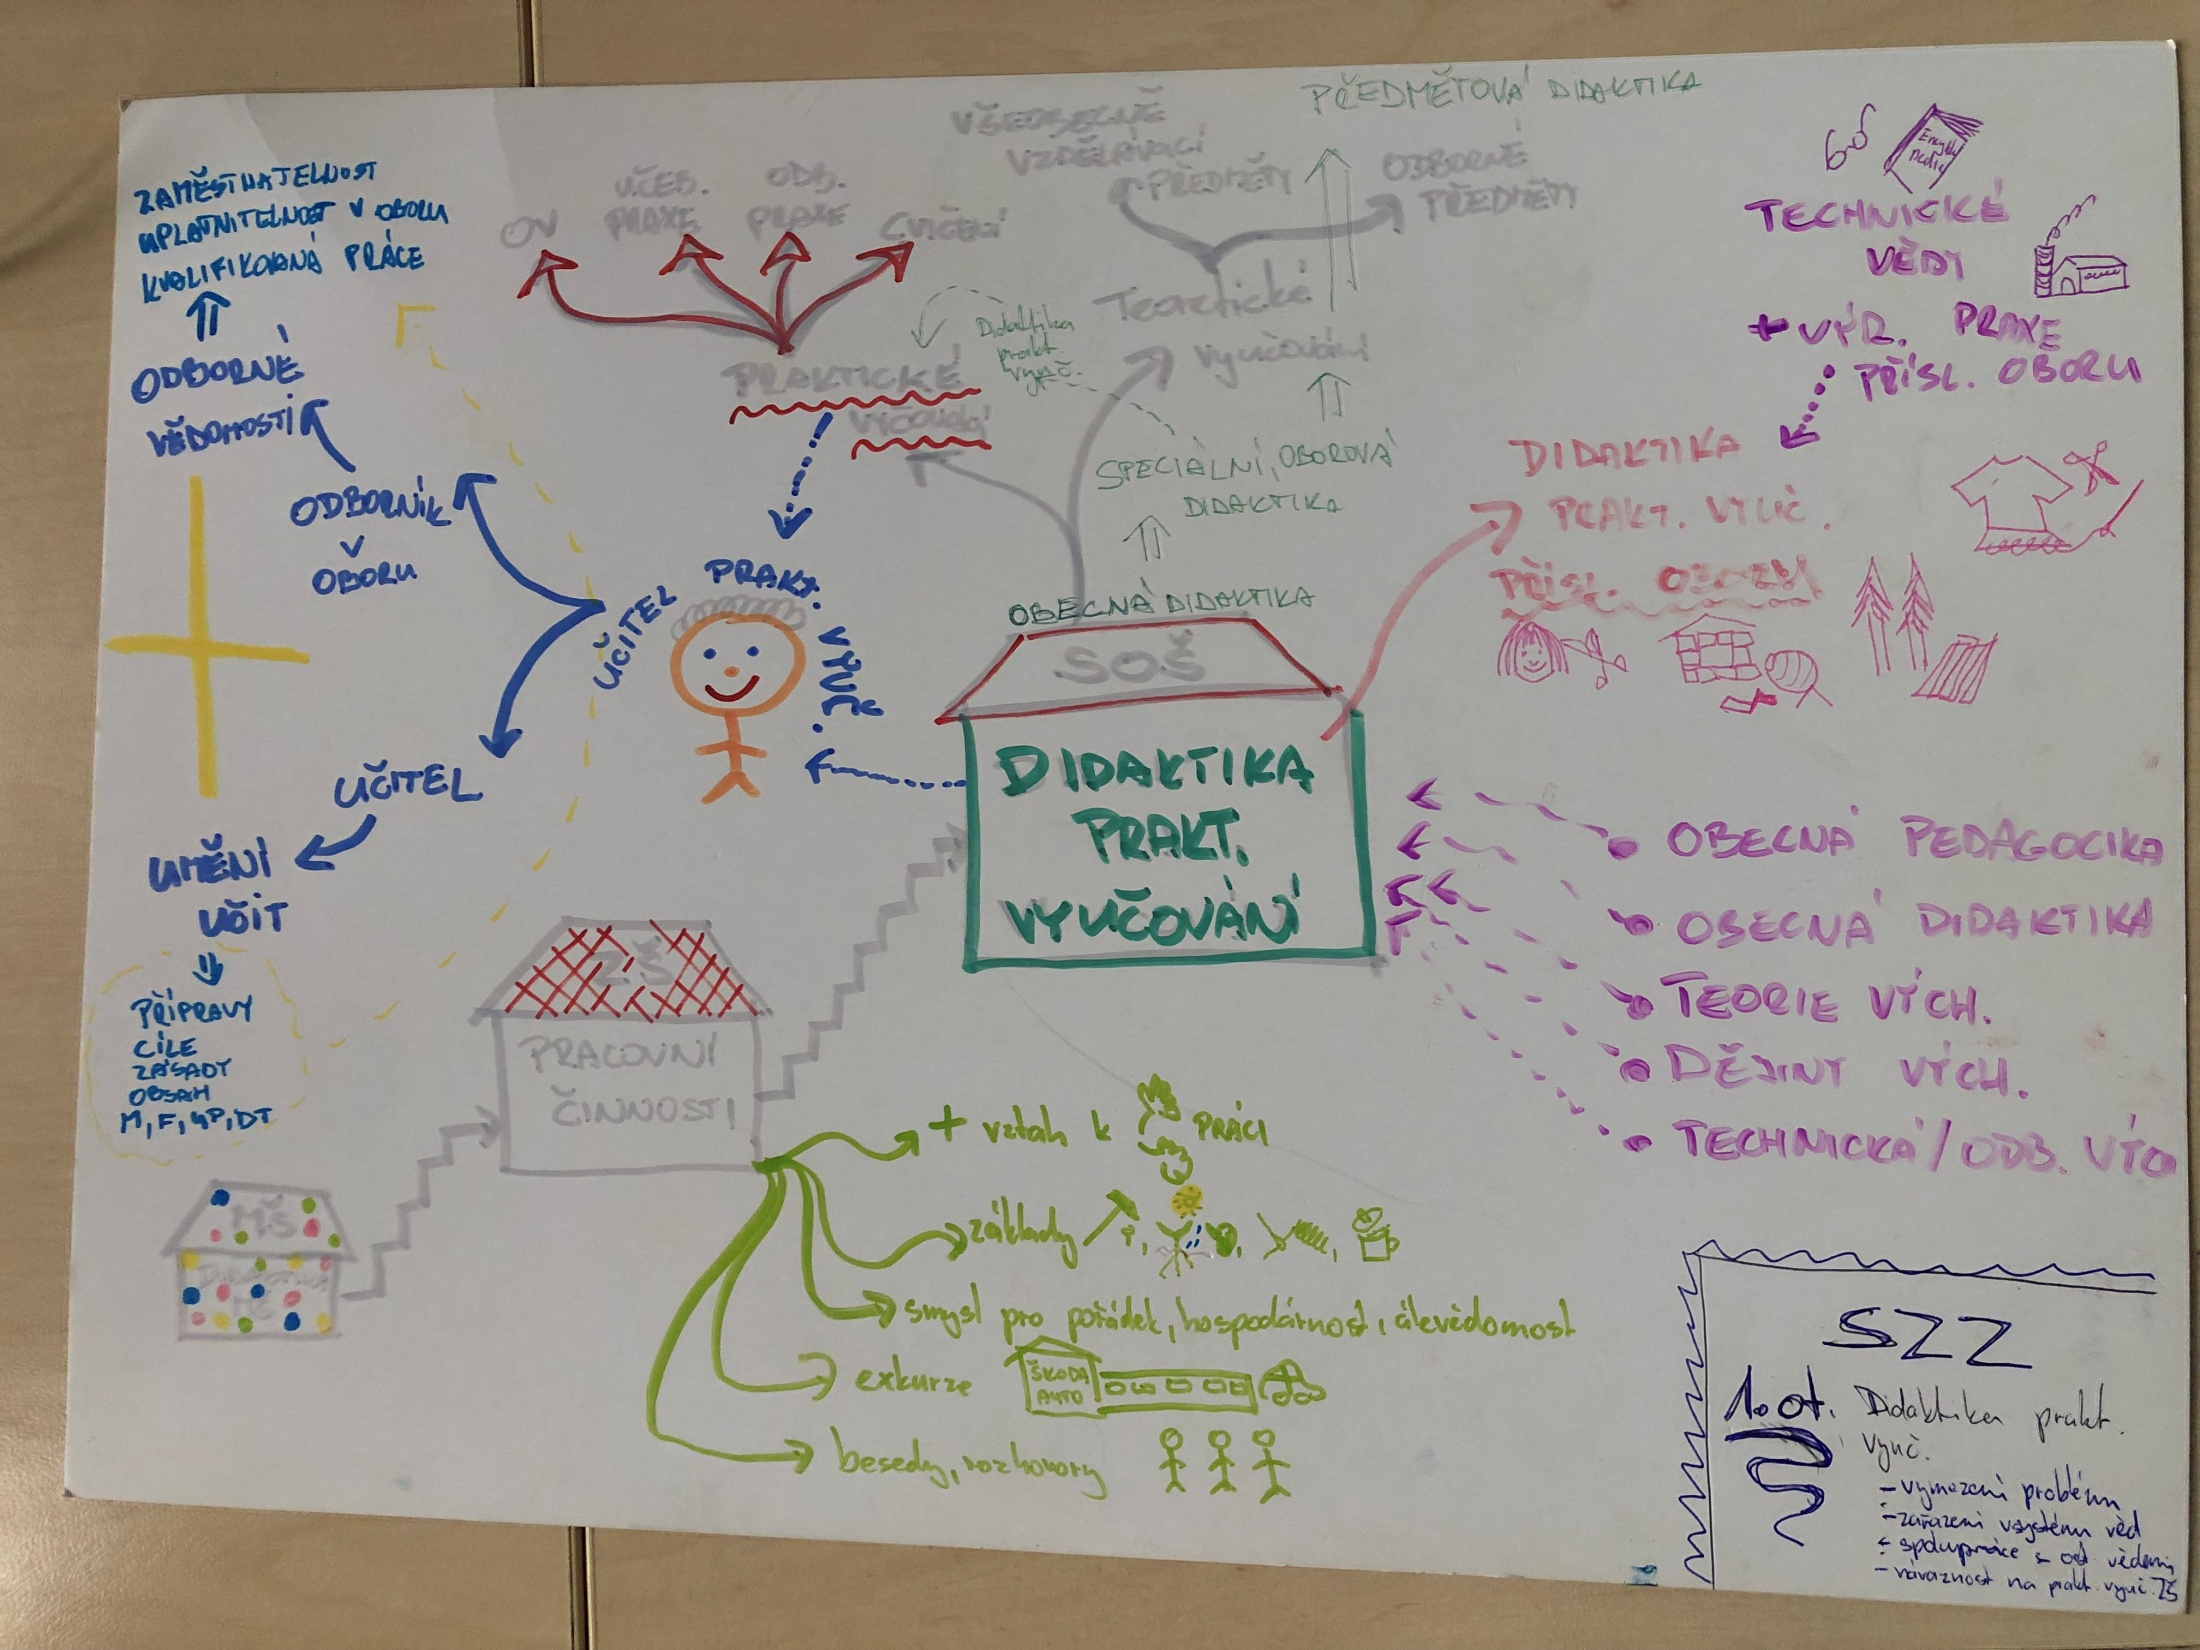 ZAMĚSTNATELNOST
UPLATNITELNOST V OBORU
KVALIFIKOVANÁ PRÁCE
ODBORNÉ
VĚDOMOSTI
ODBORNÍK
V
OBORU
UČITEL
UMĚNÍ
UČIT
PŘÍPRAVY
CÍLE
ZÁSADY
OBSAH
M, F, UP, DT
OV
UČEB.
PRAXE
ODB.
PRAXE
CVIČENÍ
PRAKTICKÉ
VYUČOVÁNÍ
Didaktika
prakt.
vyuč.
VŠEOBECNĚ
VZDĚLÁVACÍ
PŘEDMĚTY
PŘEDMĚTOVÁ DIDAKTIKA
ODBORNÉ
PŘEDMĚTY
Teoretické
vyučování
SPECIÁLNÍ, OBOROVÁ
DIDAKTIKA
OBECNÁ DIDAKTIKA
UČITEL PRAKT. VYUČ.
SOŠ
DIDAKTIKA
PRAKT.
VYUČOVÁNÍ
Encyklo
pedie
TECHNICKÉ
VĚDY
+ VÝR. PRAXE
PŘÍSL. OBORU
DIDAKTIKA
PRAKT. VYUČ.
PŘÍSL. OBORU
OBECNÁ PEDAGOGIKA
OBECNÁ DIDAKTIKA
TEORIE VÝCH.
DĚJINY VÝCH.
TECHNICKÁ/ODB. VÝCH
ZŠ
PRACOVNÍ
ČINNOSTI
MŠ
+ vztah k PRÁCI
základy
smysl pro pořádek, hospodárnost, cílevědomost
exkurze
ŠKODA
AUTO
besedy, rozhovory
SZZ
1. ot. Didaktika prakt.
vyuč.
- vymezení problému
- zařazení v systému věd
- spolupráce s ost. vědami
- návaznost na prakt. vyuč. ZŠ